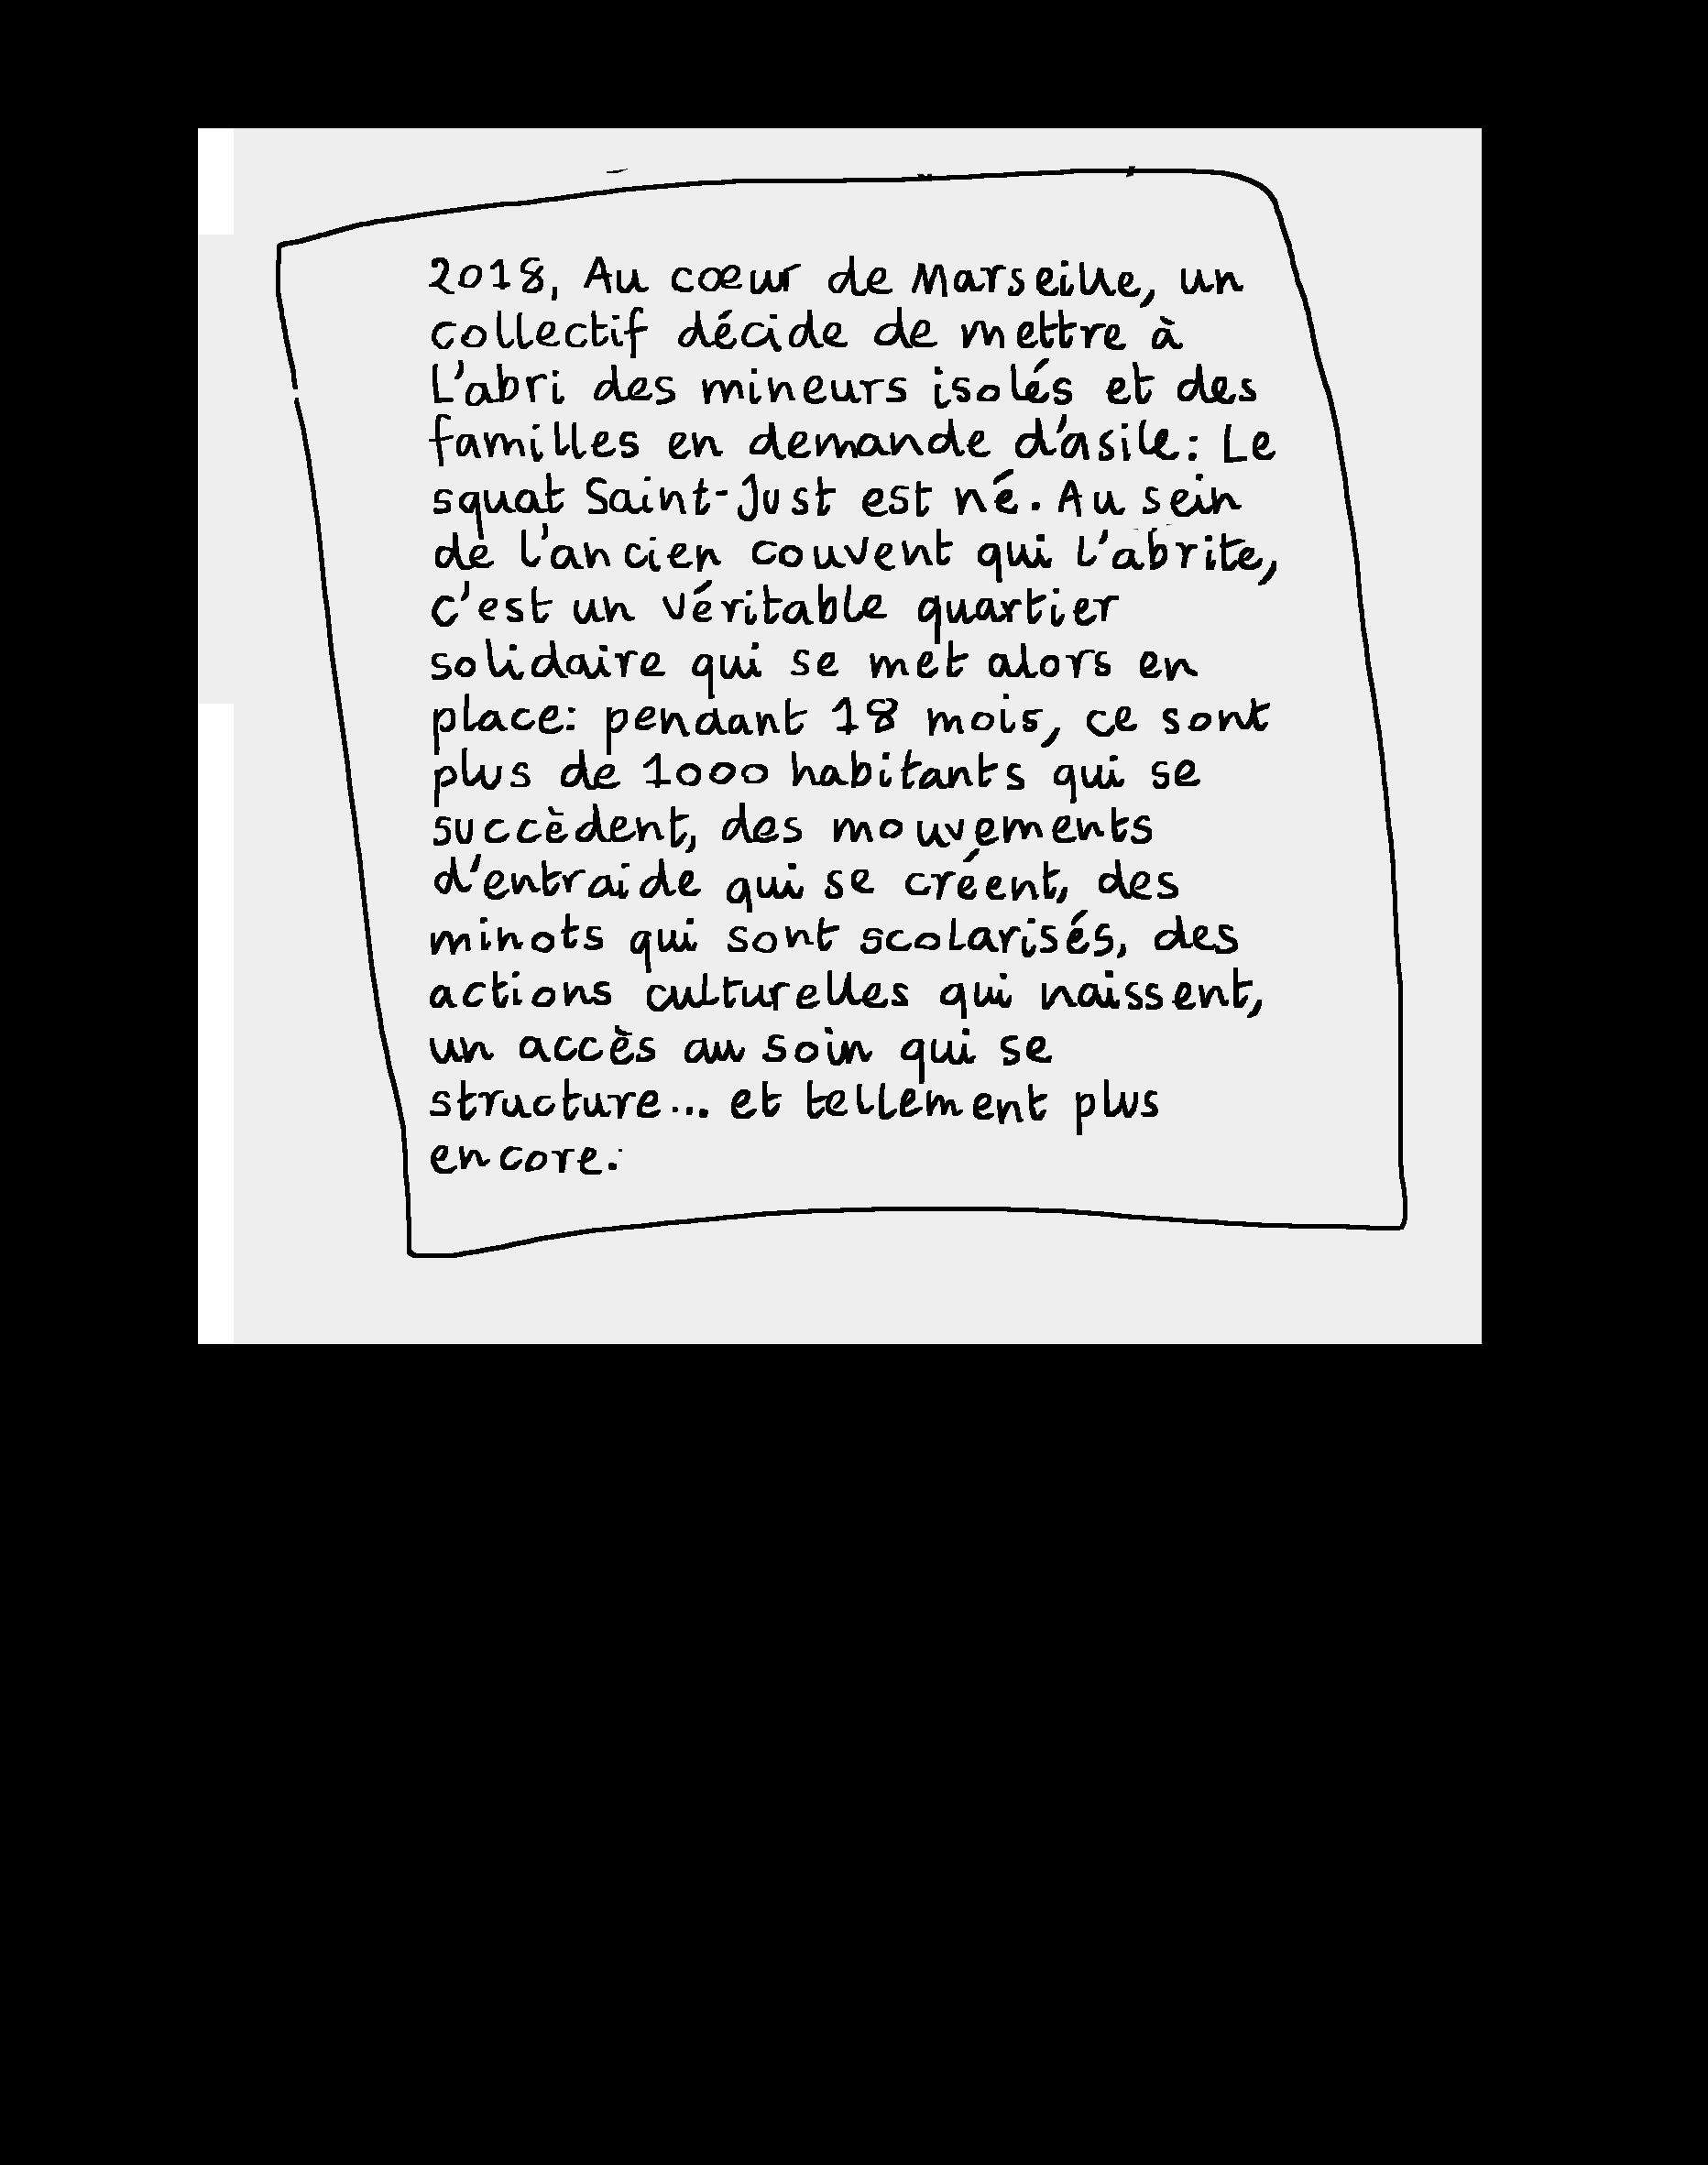 2018, Au cœur de Marseille, un
collectif décide de mettre à
L'abri des mineurs isolés et des
familles en demande d'asile: Le
squat Saint-Just est né. Au sein
de l'ancien couvent qui l'abrite,
c'est un véritable quartier
solidaire qui se met alors en
place: pendant 18 mois, ce sont
plus de 1000 habitants qui se
succèdent, des mouvements
d'entraide qui se créent, des
minots qui sont scolarisés, des
actions culturelles qui naissent,
un accès au soin qui se
structure... et tellement plus
encore.